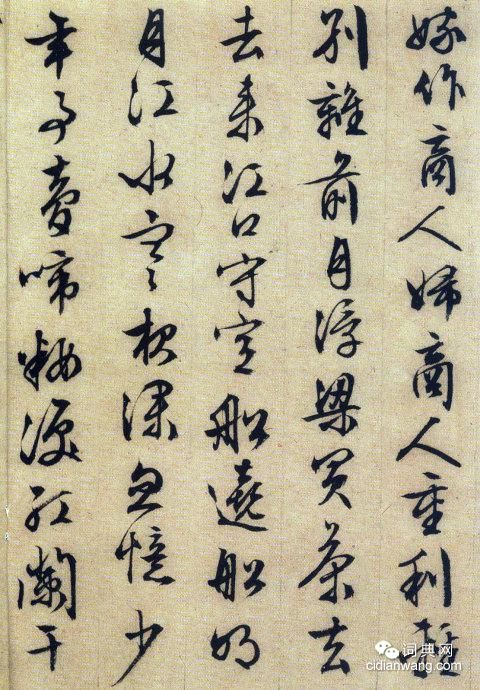 嫁作商人婦商人重利輕
別離前月浮梁買茶去
去来江口守空船遶船明
月江水寒夜深忽憶少
年事夢啼粧淚紅闌干
词典网
cidianwang.com